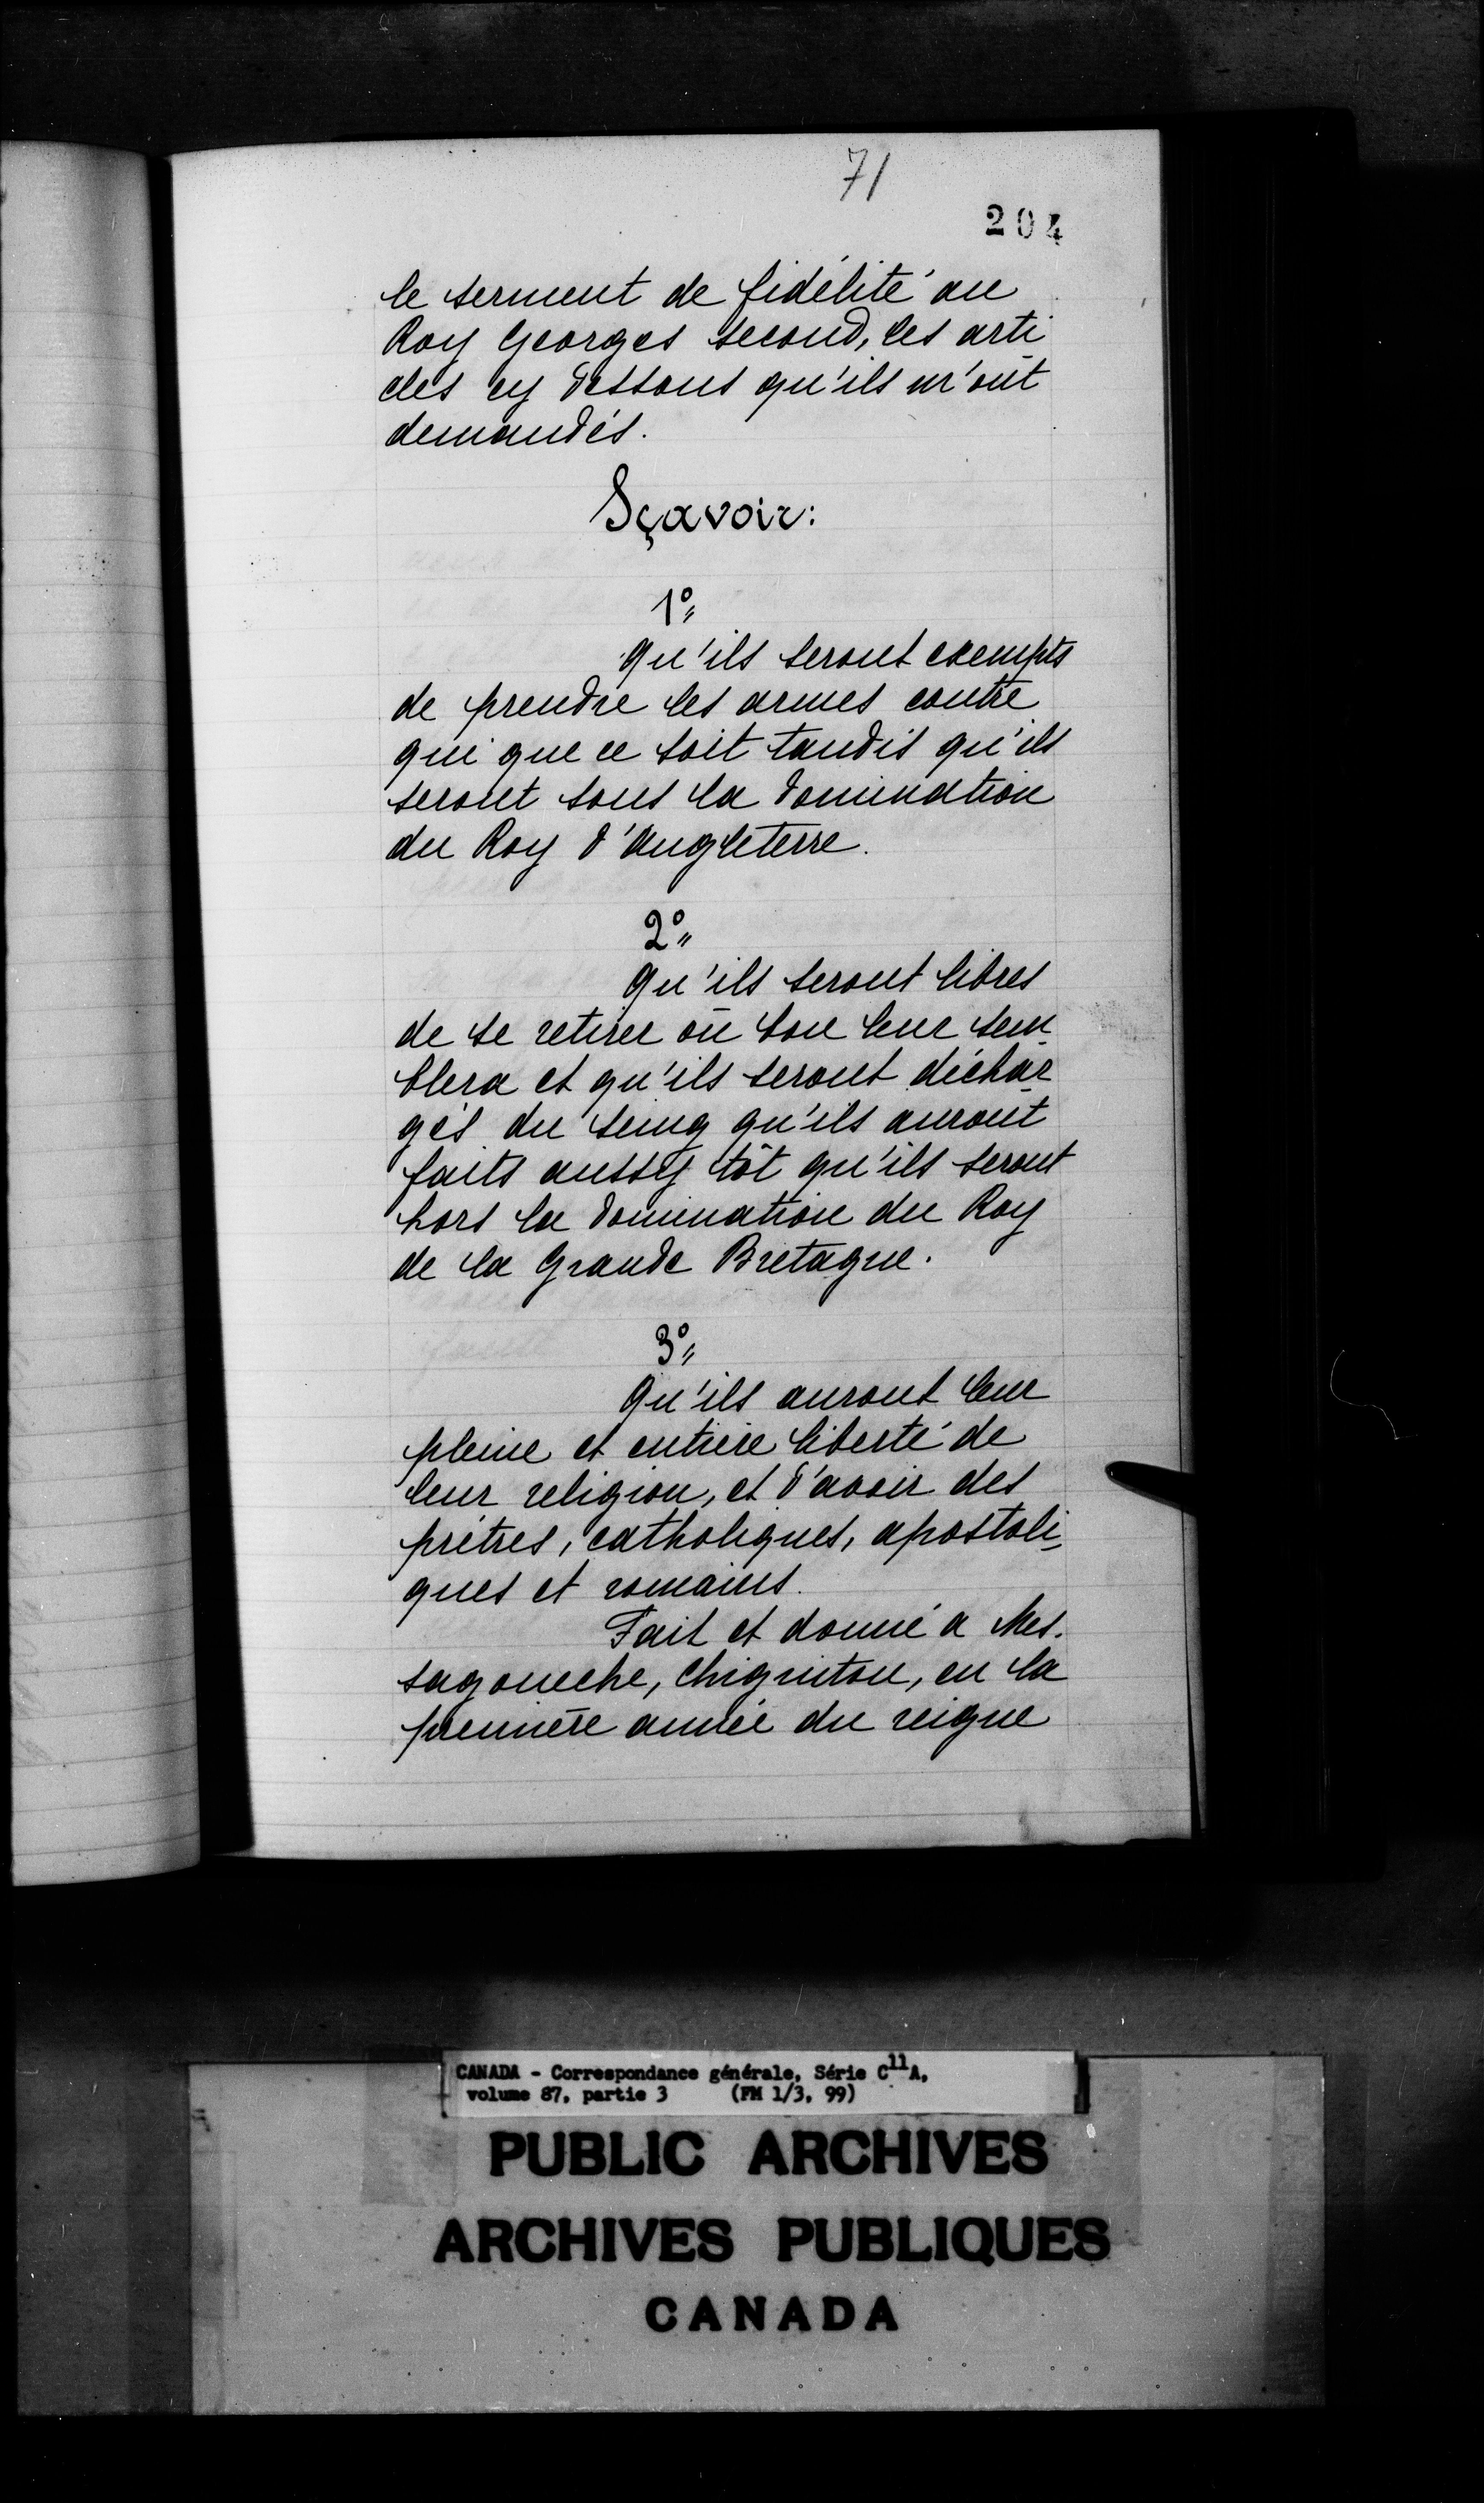 71
204
le serment de fidélité au
Roy Georges second, les arti
cles cy dessous qu'ils m'ont
demandés.
Sçavoir:
1°
Qu'ils seront exempts
de prendre les armes contre
qui que ce soit tandis qu'ils
seront sous la domination
du Roy d'Angleterre.
2°
Qu'ils seront libres
de se retirer où bon leur sem-
blera et qu'ils seront déchar-
gés du seing qu'ils auront
faits aussy tôt qu'ils seront
hors la domination du Roy
de la Grande Bretagne.
3°
Qu'ils auront leur
pleine et entière liberté de
leur religion, et d'avoir des
prêtres, catholiques, apostoli-
ques et romains.
Fait et donné a Mes.
sagoueche, Chignitou, en la
première année du reigne
CANADA - Correspondance générale, Série C11A,
volume 87, partie 3 (FM 1/3, 99)
PUBLIC ARCHIVES
ARCHIVES PUBLIQUES
CANADA